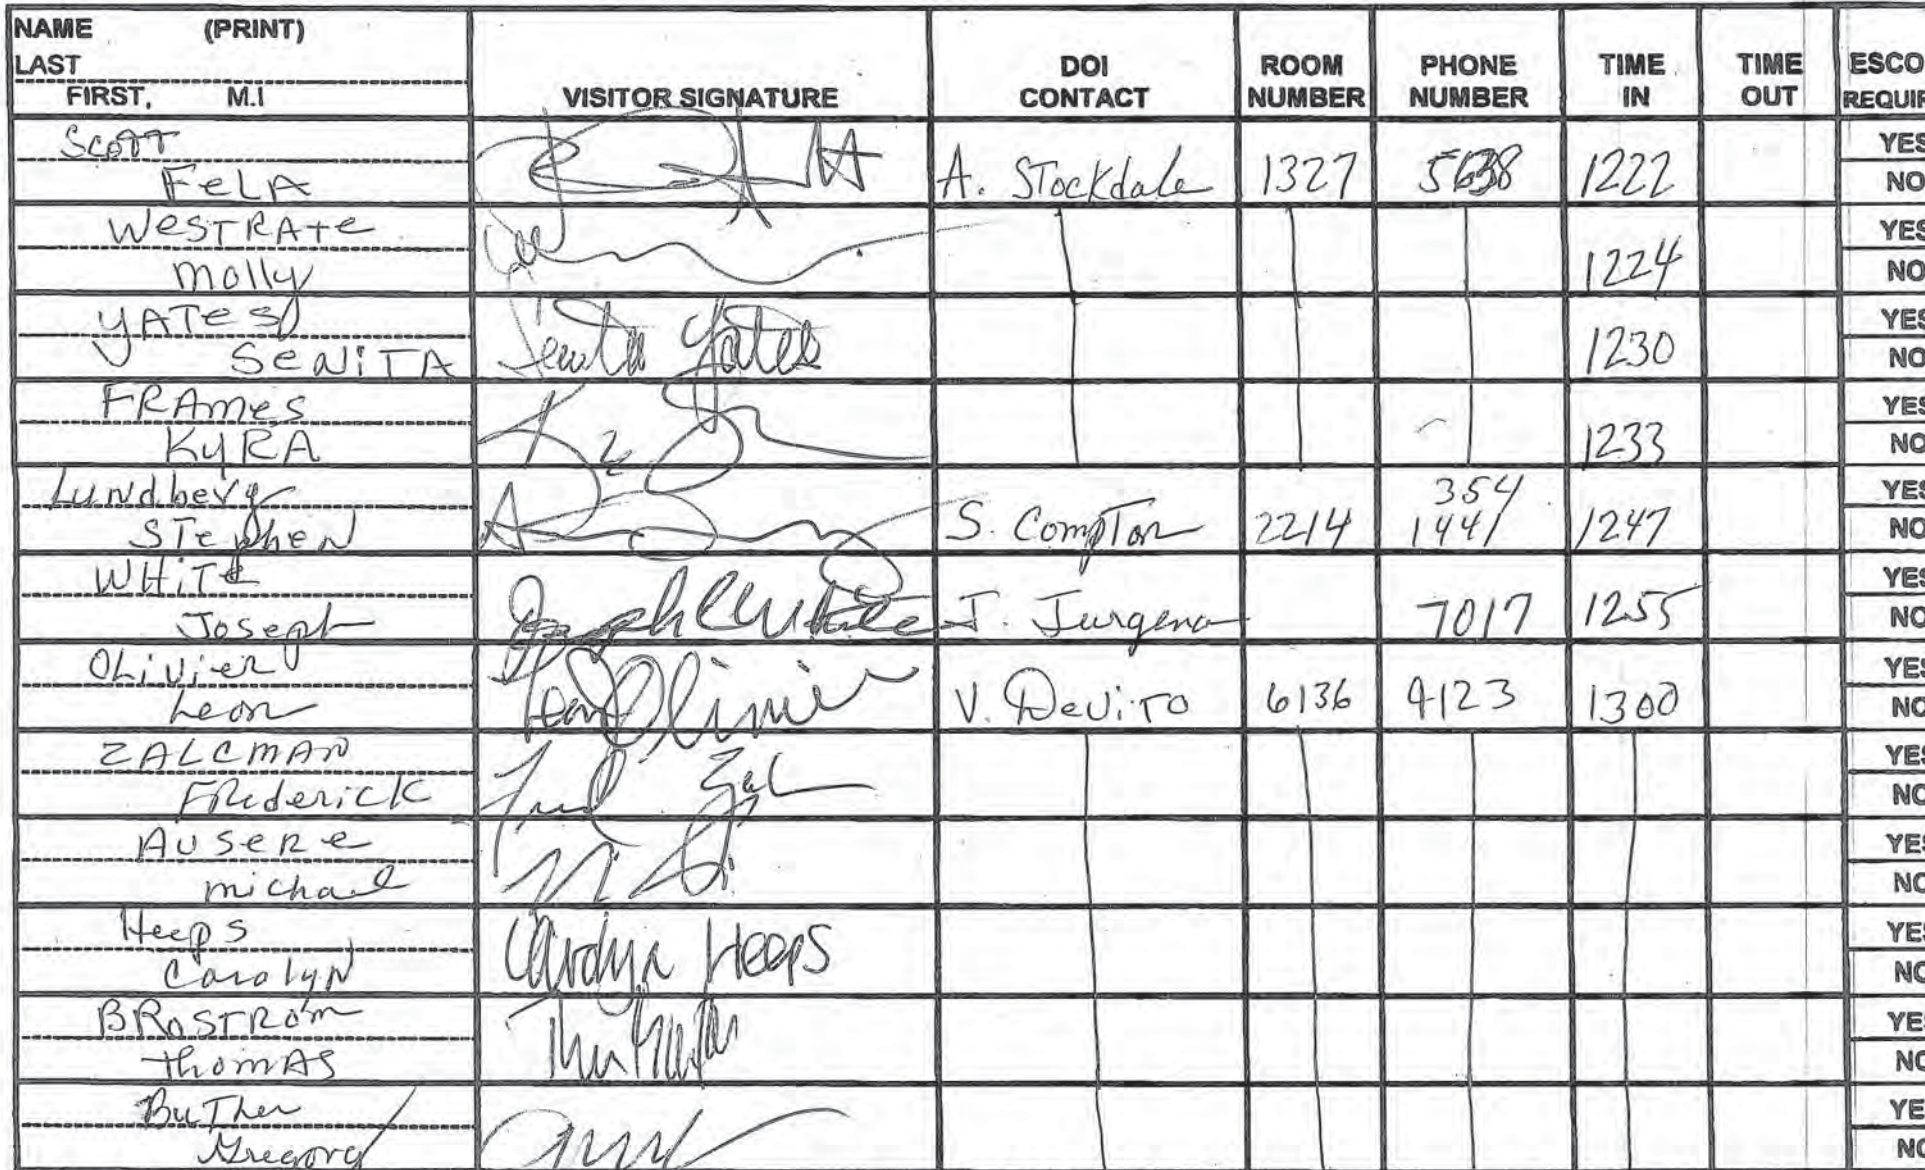 NAME (PRINT)
LAST
FIRST, M.I
VISITOR SIGNATURE
DOI CONTACT
ROOM NUMBER
PHONE NUMBER
TIME IN
TIME OUT
ESCO
REQUIR
Scott
FeLA
A. Stockdale 1327 5638 1222
YES
NO
WestRAte
Molly
1224
YES
NO
YATes
SeNiTA
Senita Yates
1230
YES
NO
FRAmes
KyRA
1233
YES
NO
Lundberg
STephen
S. Compton 2214 354 1441 1247
YES
NO
WHiTe
Joseph
Joseph C White
J. Jurgena 7017 1255
YES
NO
OLivier
Leon
Leon Olivier
V. DeviTo 6136 4123 1300
YES
NO
ZALCMAN
FRederick
Fred Zal
YES
NO
AuseRe
michael
YES
NO
Heeps
Carolyn
Carolyn Heeps
YES
NO
BRoSTRom
thomAS
YES
NO
BuTher
Gregory
YE
NO